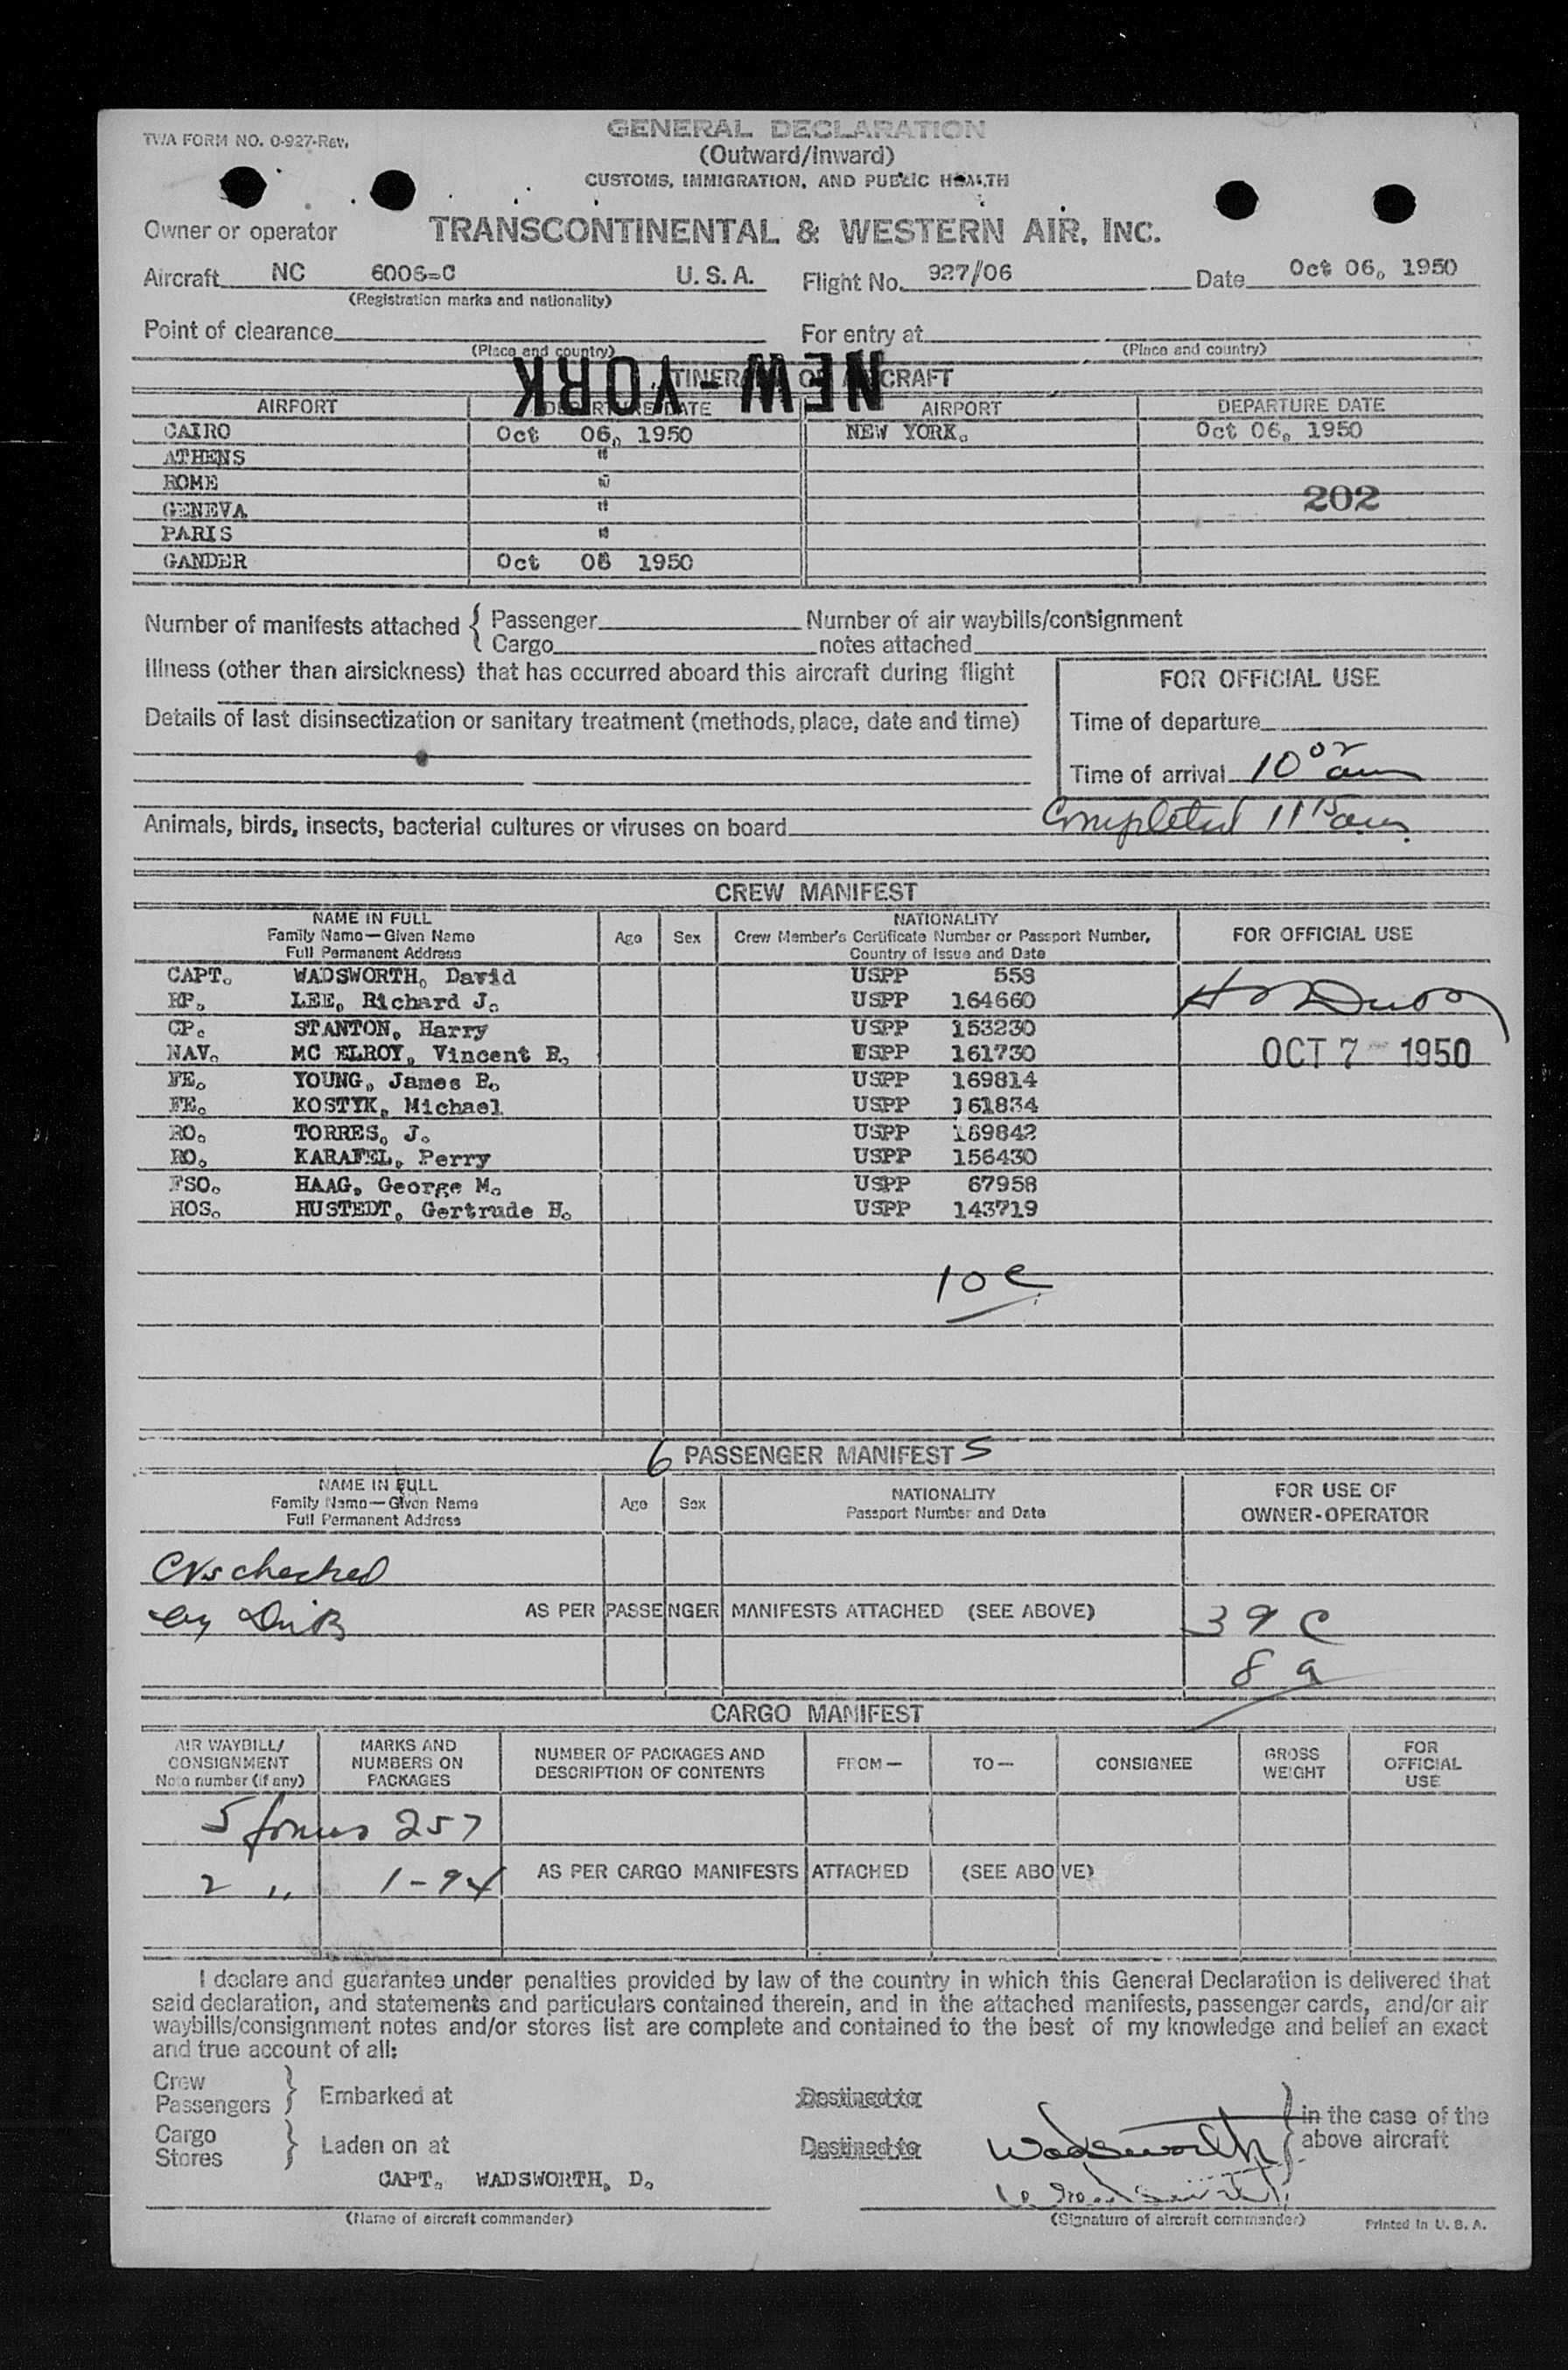 TWA FORM NO. 0-927-Rev.
GENERAL DECLARATION
(Outward/Inward)
CUSTOMS, IMMIGRATION, AND PUBLIC HEALTH
Owner or operator TRANSCONTINENTAL & WESTERN AIR, INC.
Aircraft NC 6006-C U. S. A. Flight No. 927/06 Date Oct 06, 1950
(Registration marks and nationality)
Point of clearance For entry at
(Place and country) (Place and country)
NEW-YORK
ITINERARY OF AIRCRAFT
AIRPORT DEPARTURE DATE AIRPORT DEPARTURE DATE
CAIRO Oct 06, 1950 NEW YORK. Oct 06, 1950
ATHENS "
ROME "
GENEVA " 202
PARIS "
GANDER Oct 06 1950
Number of manifests attached { Passenger Number of air waybills/consignment
Cargo notes attached
Illness (other than airsickness) that has occurred aboard this aircraft during flight
FOR OFFICIAL USE
Details of last disinsectization or sanitary treatment (methods, place, date and time)
Time of departure
Time of arrival 10 02 am
Completed 11 15 am.
Animals, birds, insects, bacterial cultures or viruses on board
CREW MANIFEST
NAME IN FULL NATIONALITY
Family Name—Given Name Age Sex Crew Member's Certificate Number or Passport Number, FOR OFFICIAL USE
Full Permanent Address Country of Issue and Date
CAPT. WADSWORTH, David USPP 558
RP. LEE, Richard J. USPP 164660
CP. STANTON, Harry USPP 153230
NAV. MC ELROY, Vincent B. USPP 161730 OCT 7 - 1950
FE. YOUNG, James B. USPP 169814
FE. KOSTYK, Michael USPP 161834
RO. TORRES, J. USPP 169842
RO. KARAFEL, Perry USPP 156430
FSO. HAAG, George M. USPP 67958
HOS. HUSTEDT, Gertrude H. USPP 143719
10 C
6 PASSENGER MANIFEST 5
NAME IN FULL NATIONALITY FOR USE OF
Family Name—Given Name Age Sex Passport Number and Date OWNER-OPERATOR
Full Permanent Address
checked
by AS PER PASSENGER MANIFESTS ATTACHED (SEE ABOVE) 39 C
8 a
CARGO MANIFEST
AIR WAYBILL/ MARKS AND NUMBER OF PACKAGES AND FROM— TO— CONSIGNEE GROSS FOR
CONSIGNMENT NUMBERS ON DESCRIPTION OF CONTENTS WEIGHT OFFICIAL
Note number (if any) PACKAGES USE
5 forms 257
2 " 1-94 AS PER CARGO MANIFESTS ATTACHED (SEE ABOVE)
I declare and guarantee under penalties provided by law of the country in which this General Declaration is delivered that
said declaration, and statements and particulars contained therein, and in the attached manifests, passenger cards, and/or air
waybills/consignment notes and/or stores list are complete and contained to the best of my knowledge and belief an exact
and true account of all:
Crew
Passengers } Embarked at Destined to
Cargo
Stores } Laden on at Destined to Wadsworth } in the case of the
above aircraft
CAPT. WADSWORTH, D.
(Name of aircraft commander) (Signature of aircraft commander) Printed in U. S. A.